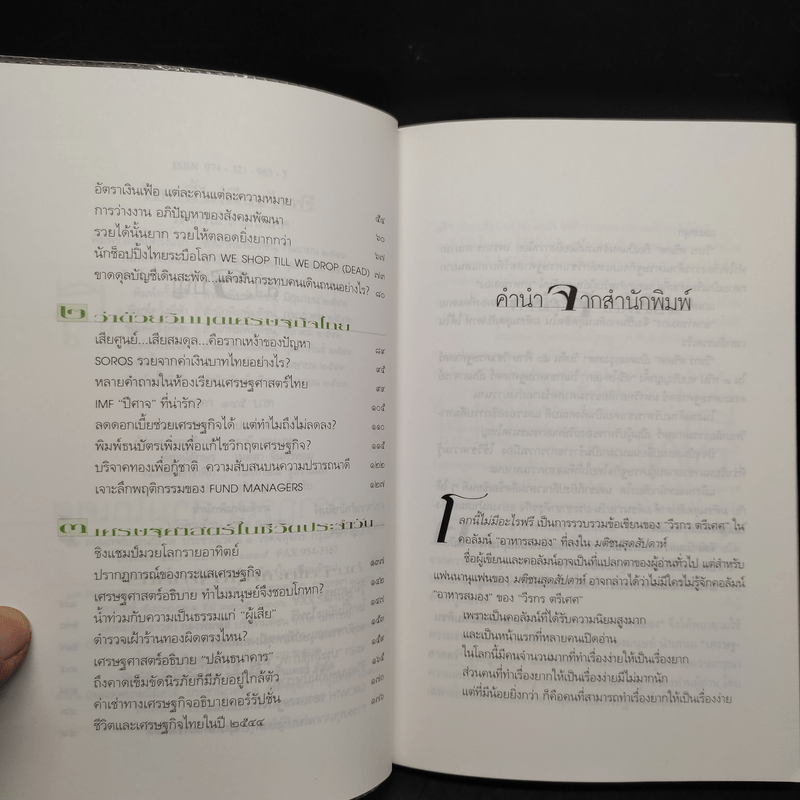 อัตราเงินเฟ้อ แต่ละคนแต่ละความหมาย
การว่างงาน อภิปัญหาของสังคมพัฒนา ๕๔
รวยได้นั้นยาก รวยให้ตลอดยิ่งยากกว่า ๖๐
นักช็อปปิ้งไทยระบือโลก WE SHOP TILL WE DROP (DEAD) ๖๗
ขาดดุลบัญชีเดินสะพัด...แล้วมันกระทบคนเดินถนนอย่างไร? ๗๓
๘๐
๒ ว่าด้วยวิกฤตเศรษฐกิจไทย
เสียศูนย์...เสียสมดุล...คือรากเหง้าของปัญหา ๘๙
SOROS รวยจากค่าเงินบาทไทยอย่างไร? ๙๕
หลายคำถามในห้องเรียนเศรษฐศาสตร์ไทย ๙๙
IMF "ปีศาจ" ที่น่ารัก? ๑๐๕
ลดดอกเบี้ยช่วยเศรษฐกิจได้ แต่ทำไมถึงไม่ลดลง? ๑๑๐
พิมพ์ธนบัตรเพิ่มเพื่อแก้ไขวิกฤตเศรษฐกิจ? ๑๑๕
บริจาคทองเพื่อกู้ชาติ ความสับสนบนความปรารถนาดี ๑๒๒
เจาะลึกพฤติกรรมของ FUND MANAGERS ๑๒๗
๓ เศรษฐศาสตร์ในชีวิตประจำวัน
ชิงแชมป์มวยโลกรายอาทิตย์
ปรากฏการณ์ของกระแสเศรษฐกิจ ๑๓๗
เศรษฐศาสตร์อธิบาย ทำไมมนุษย์จึงชอบโกหก? ๑๔๒
น้ำท่วมกับความเป็นธรรมแก่ "ผู้เสีย" ๑๔๗
ตำรวจเฝ้าร้านทองผิดตรงไหน? ๑๕๔
เศรษฐศาสตร์อธิบาย "ปล้นธนาคาร" ๑๕๙
ถึงคาดเข็มขัดนิรภัยก็มีภัยอยู่ใกล้ตัว ๑๖๕
ค่าเช่าทางเศรษฐกิจอธิบายคอร์รัปชั่น ๑๗๐
ชีวิตและเศรษฐกิจไทยในปี ๒๕๔๔ ๑๗๖
คำนำ จากสำนักพิมพ์
โลกนี้ไม่มีอะไรฟรี เป็นการรวบรวมข้อเขียนของ "วีรกร ตรีเศศ" ใน
คอลัมน์ "อาหารสมอง" ที่ลงใน มติชนสุดสัปดาห์
ชื่อผู้เขียนและคอลัมน์อาจเป็นที่แปลกตาของผู้อ่านทั่วไป แต่สำหรับ
แฟนนานุแฟนของ มติชนสุดสัปดาห์ อาจกล่าวได้ว่าไม่มีใครไม่รู้จักคอลัมน์
"อาหารสมอง" ของ "วีรกร ตรีเศศ"
เพราะเป็นคอลัมน์ที่ได้รับความนิยมสูงมาก
และเป็นหน้าแรกที่หลายคนเปิดอ่าน
ในโลกนี้มีคนจำนวนมากที่ทำเรื่องง่ายให้เป็นเรื่องยาก
ส่วนคนที่ทำเรื่องยากให้เป็นเรื่องง่ายมีไม่มากนัก
แต่ที่มีน้อยยิ่งกว่า ก็คือคนที่สามารถทำเรื่องยากให้เป็นเรื่องง่าย